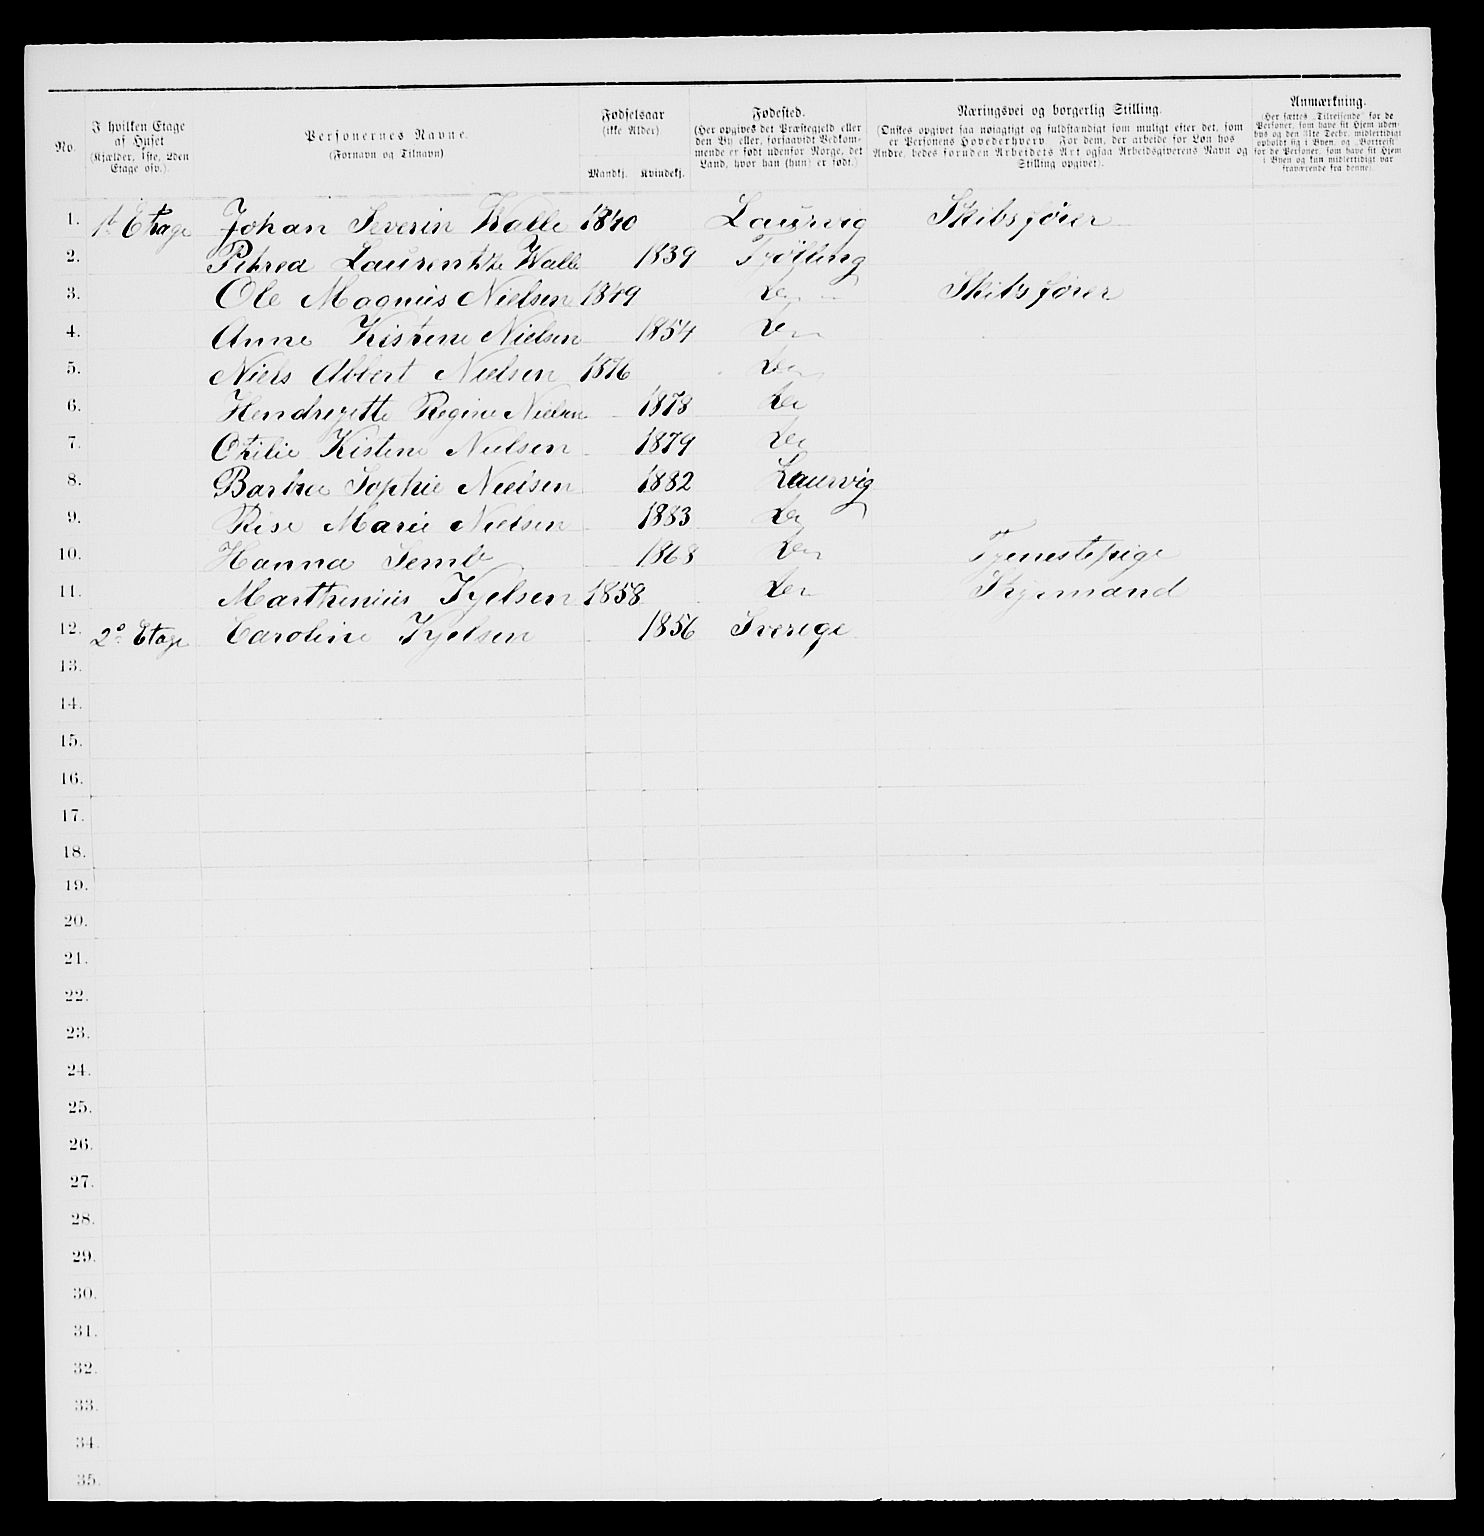 No.
I hvilken Etage
af Huset
(Kjælder, 1ste, 2den
Etage osv.).
Personernes Navne.
(Fornavn og Tilnavn)
Fødselsaar
(ikke Alder)
Mandkj. Kvindekj.
Fødested.
(Her opgives det Præstegjeld eller
den By eller, forsaavidt Vedkom-
mende er født udenfor Norge, det
Land, hvor han (hun) er født.)
Næringsvei og borgerlig Stilling.
(Ønskes opgivet saa nøiagtigt og fuldstændigt som muligt efter det, som
er Personens Hovederhverv. For dem, der arbeide for Løn hos
Andre, bedes foruden Arbeidets Art ogsaa Arbeidsgiverens Navn og
Stilling opgivet).
Anmærkning.
(Her sættes „Tilreisende" for de
Personer, som have sit Hjem uden-
bys og den 31te Decbr. midlertidigt
opholdt sig i Byen, og „Bortreist"
for de Personer, som have sit Hjem
i Byen og kun midlertidigt var
fraværende fra denne).
1. 1st Etage Johan Severin Walle 1840 Laurvig Skibsfører
2. Petrea Laurentze Walle 1839 Tjølling
3. Ole Magnus Nielsen 1849 do Skibsfører
4. Anne Kistene Nielsen 1854 do
5. Niels Albert Nielsen 1876 do
6. Hendryette Regine Nielsen 1878 do
7. Otilie Kistene Nielsen 1879 do
8. Barbra Sophie Nielsen 1882 Laurvig
9. Rise Marie Nielsen 1883 do
10. Hanna Semb 1868 do Tjenestepige
11. Marthinius Kjelsen 1858 do Styrmand
12. 2º Etage Caroline Kjelsen 1856 Sverige
13.
14.
15.
16.
17.
18.
19.
20.
21.
22.
23.
24.
25.
26.
27.
28.
29.
30.
31.
32.
33.
34.
35.